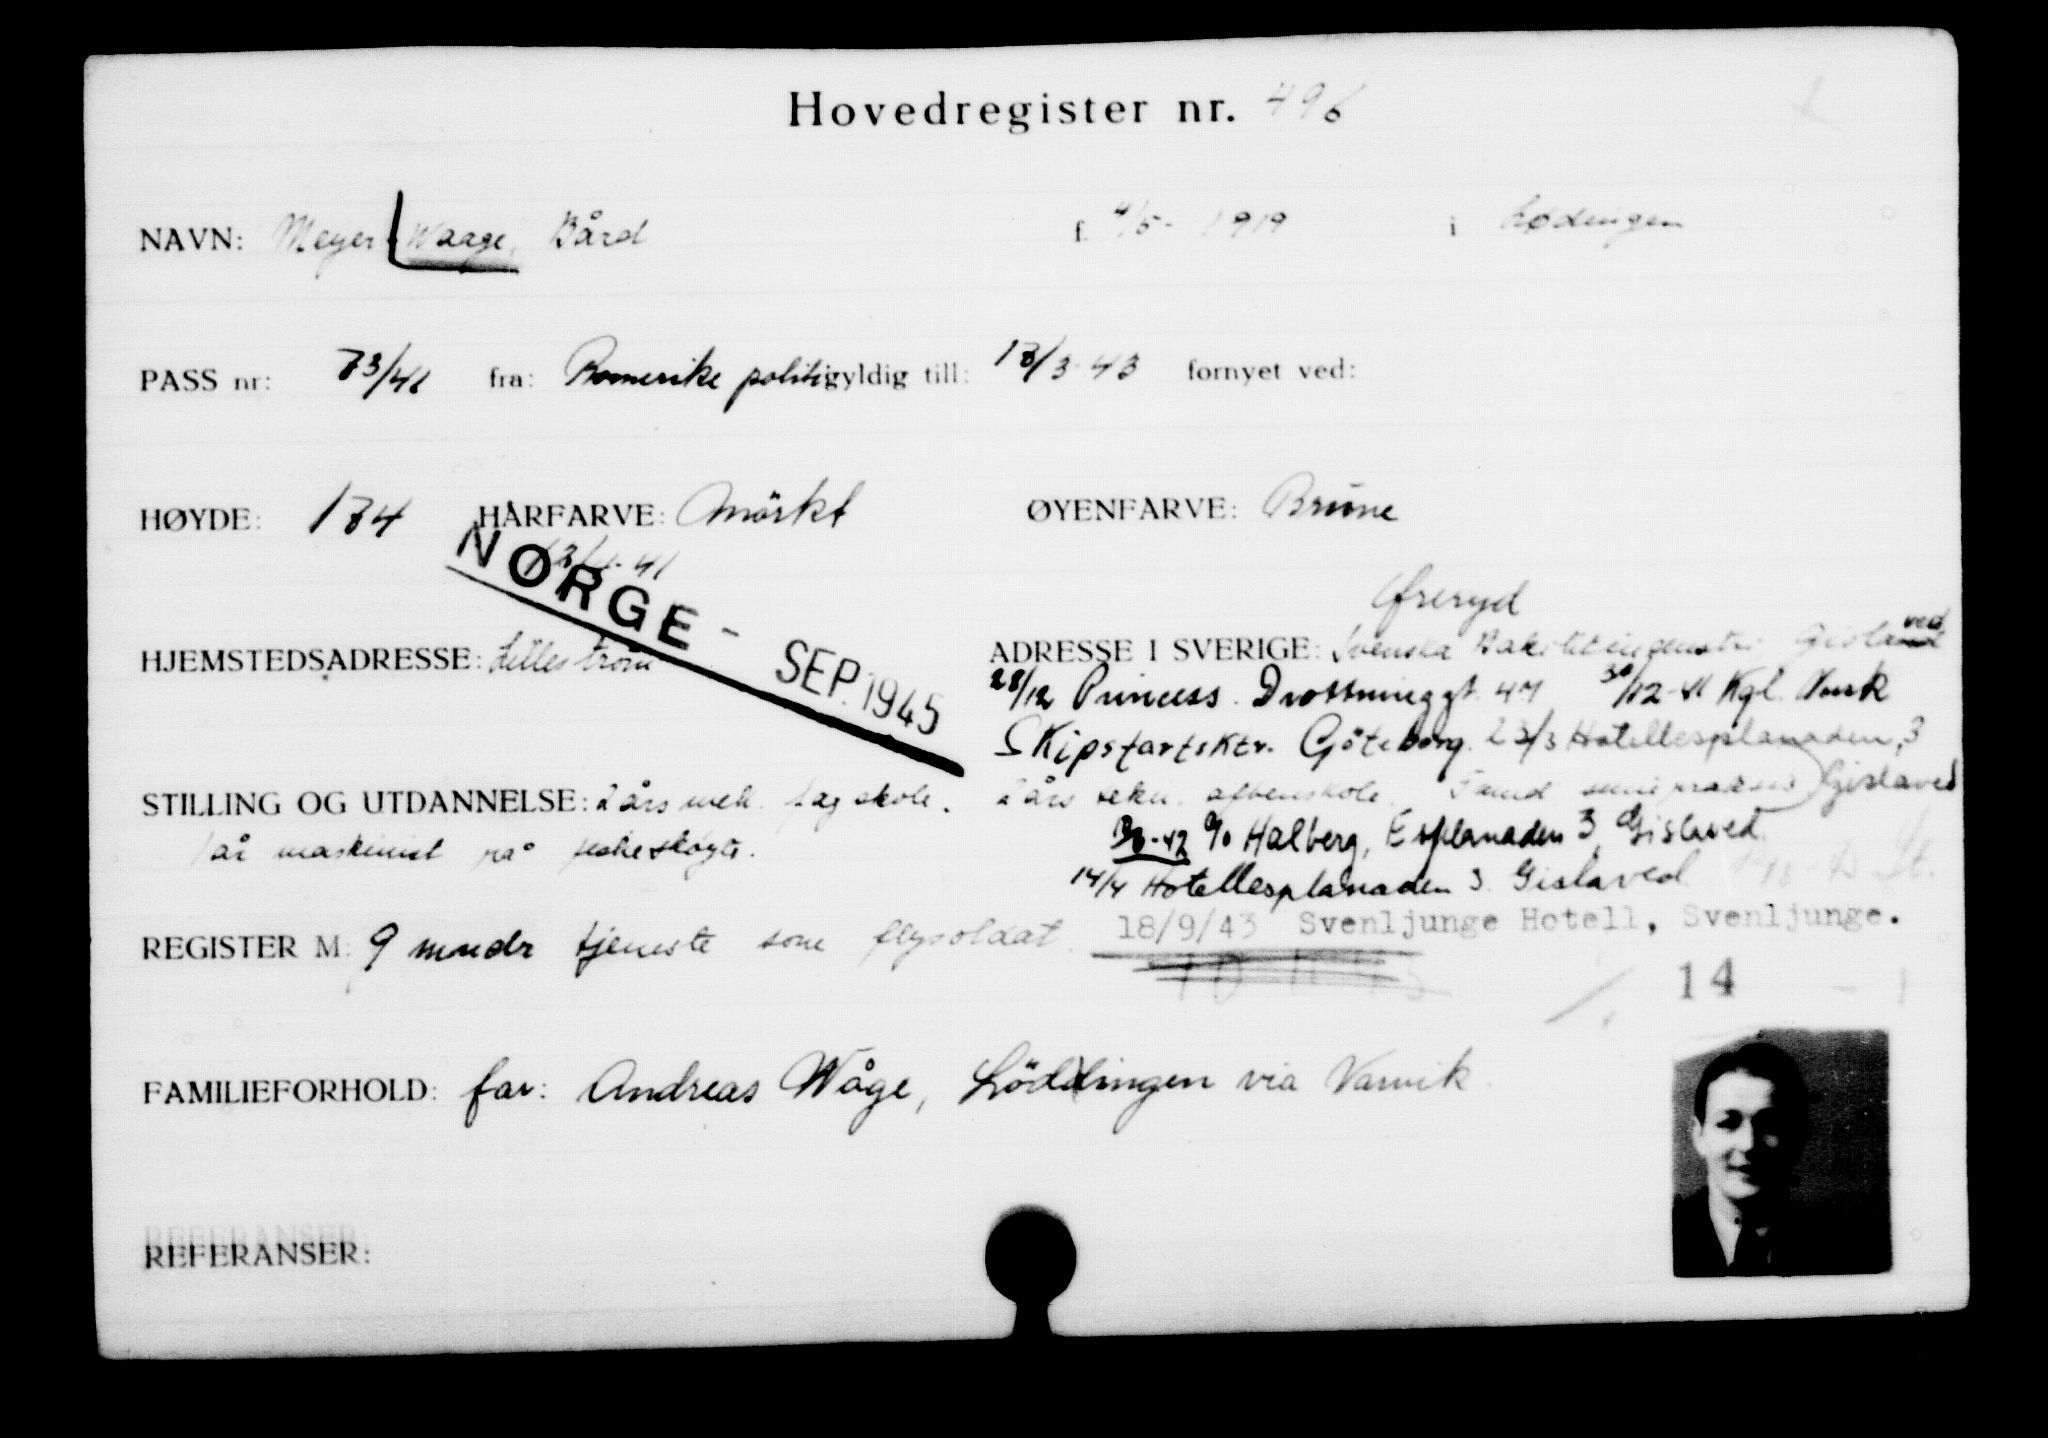 Hovedregister nr. 496
NAVN: Meyer Waage, Bård f. 4/5- 1919 i Lødingen
PASS nr: 73/41 fra: Romerike politi gyldig till: 18/3-43 fornyet ved:
HØYDE: 184 HÅRFARVE: Mörkt ØYENFARVE: Brune
NORGE - SEP. 1945
HJEMSTEDSADRESSE: Lillestrøm ADRESSE I SVERIGE: Svenska Gislaved
28/12 Princess. Drottninggt. 47 30/12-41 Kgl. Norsk
Skipsfartsktr. Göteborg. 23/3 Hotellesplanaden, 3
Gislaved
STILLING OG UTDANNELSE: 2 års mek. fagskole. 2 års tekn. aftenskole.
1 år maskinist på
c/o Halberg, Esplanaden 3, Gislaved
14/4 Hotellesplanaden 3. Gislaved
REGISTER M: 9 mndr tjeneste som flysoldat. 18/9/43 Svenljunge Hotell, Svenljunge.
14
FAMILIEFORHOLD: far: Andreas Wåge, Löddingen via Narvik.
REFERANSER: